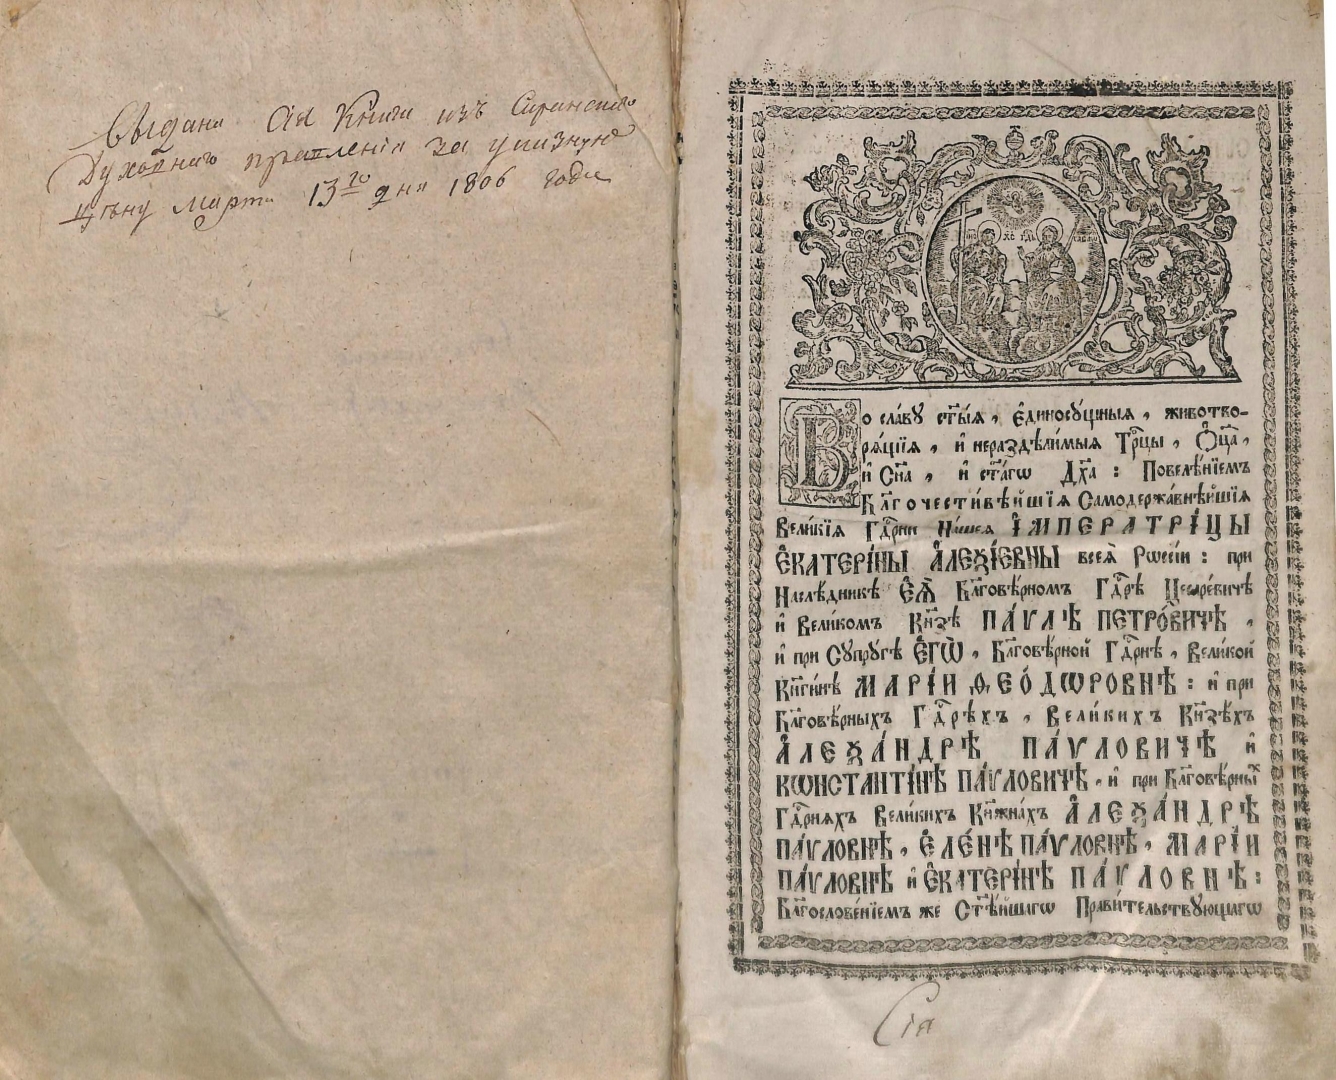 Выдана Сія Книга изъ Саранскаго
Духовнаго правленія за указную
цѣну Марта 13го дня 1806 года
Во сла́ву ст҃ы́ѧ, є҆диносѹ́щныѧ, животво-
рѧ́щїѧ, и҆ нераздѣли́мыѧ Трⷪ҇цы, Ѻ҆ц҃а̀,
и҆ Сн҃а, и҆ ст҃а́гѡ Дх҃а: Повелѣ́нїемъ
Бл҃гочести́вѣйшїѧ Самодержа́внѣйшїѧ
Вели́кїѧ Гдⷭ҇рни На́шеѧ І҆МПЕРАТРИ́ЦЫ
Є҆КАТЕРІ́НЫ А҆ЛЕѮІ́ЕВНЫ всеѧ̀ Рѡссі́и: при
Наслѣ́дникѣ Є҆Ѧ̀ Бл҃говѣ́рномъ Гдⷭ҇рѣ Цесаре́вичѣ
и҆ Вели́комъ Кнѧ҃зѣ ПА́ѴЛѢ ПЕТРО́ВИЧѢ,
и҆ при Сѹпрѹ́гѣ Є҆ГѠ̀, Бл҃говѣ́рной Гдⷭ҇рнѣ, Вели́кой
Кнѧ҃ги́нѣ МАРІ́И Ѳ҆ЕО́ДѠРОВНѢ: и҆ при
Бл҃говѣ́рныхъ Гдⷭ҇рѣхъ, Вели́кихъ Кнѧ҃зѣхъ
А҆ЛЕѮА́НДРѢ ПА́ѴЛОВИЧѢ и҆
КѠНСТАНТІ́НѢ ПА́ѴЛОВИЧѢ, и҆ при Бл҃говѣ́рныⷯ
Гдⷭ҇рнѧхъ Вели́кихъ Кнѧ҃жна́хъ А҆ЛЕѮА́НДРѢ
ПА́ѴЛОВНѢ, Є҆ЛЕ́НѢ ПА́ѴЛОВНѢ, МАРІ́И
ПА́ѴЛОВНѢ и҆ Є҆КАТЕРІ́НѢ ПА́ѴЛОВНѢ:
Бл҃гослове́нїемъ же Ст҃ѣ́йшагѡ Прави́тельствѹющагѡ
Сія